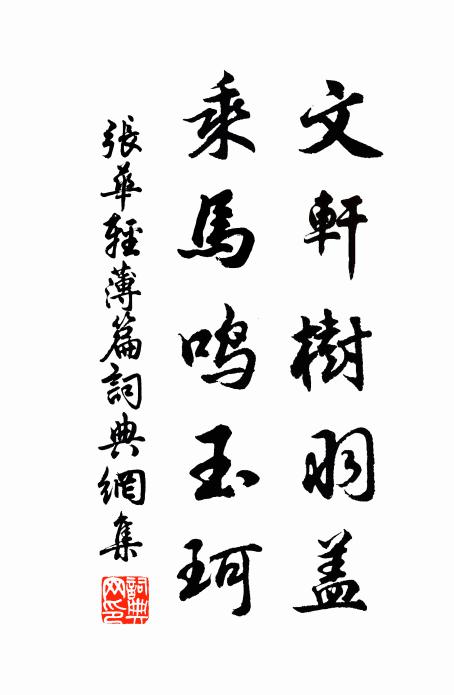 文軒樹羽蓋
乘馬鳴玉珂
張華輕薄篇詞典網集
詞典網印